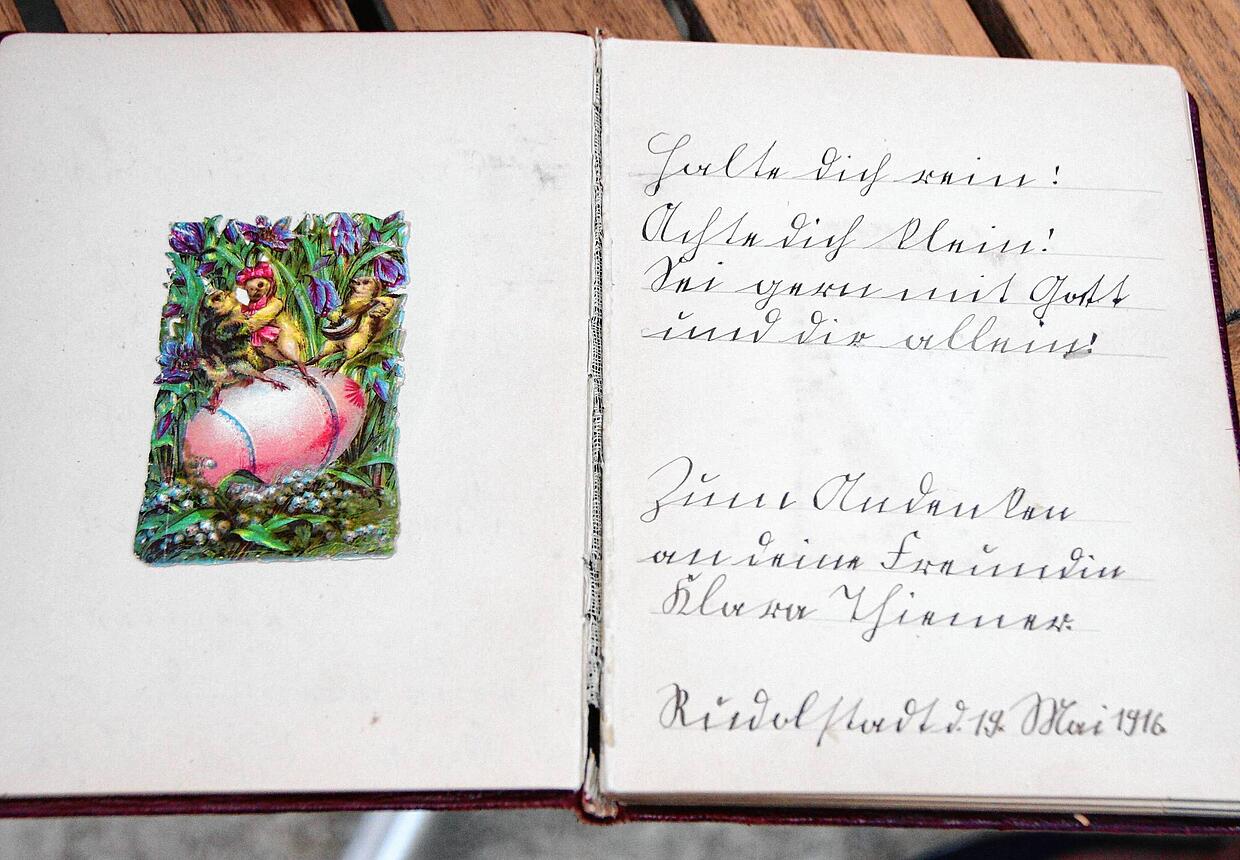 Halte dich rein!
Achte dich klein!
Sei gern mit Gott
und dir allein!
Zum Andenken
an deine Freundin
Klara Thiemer.
Rudolstadt d. 19. Mai 1916.